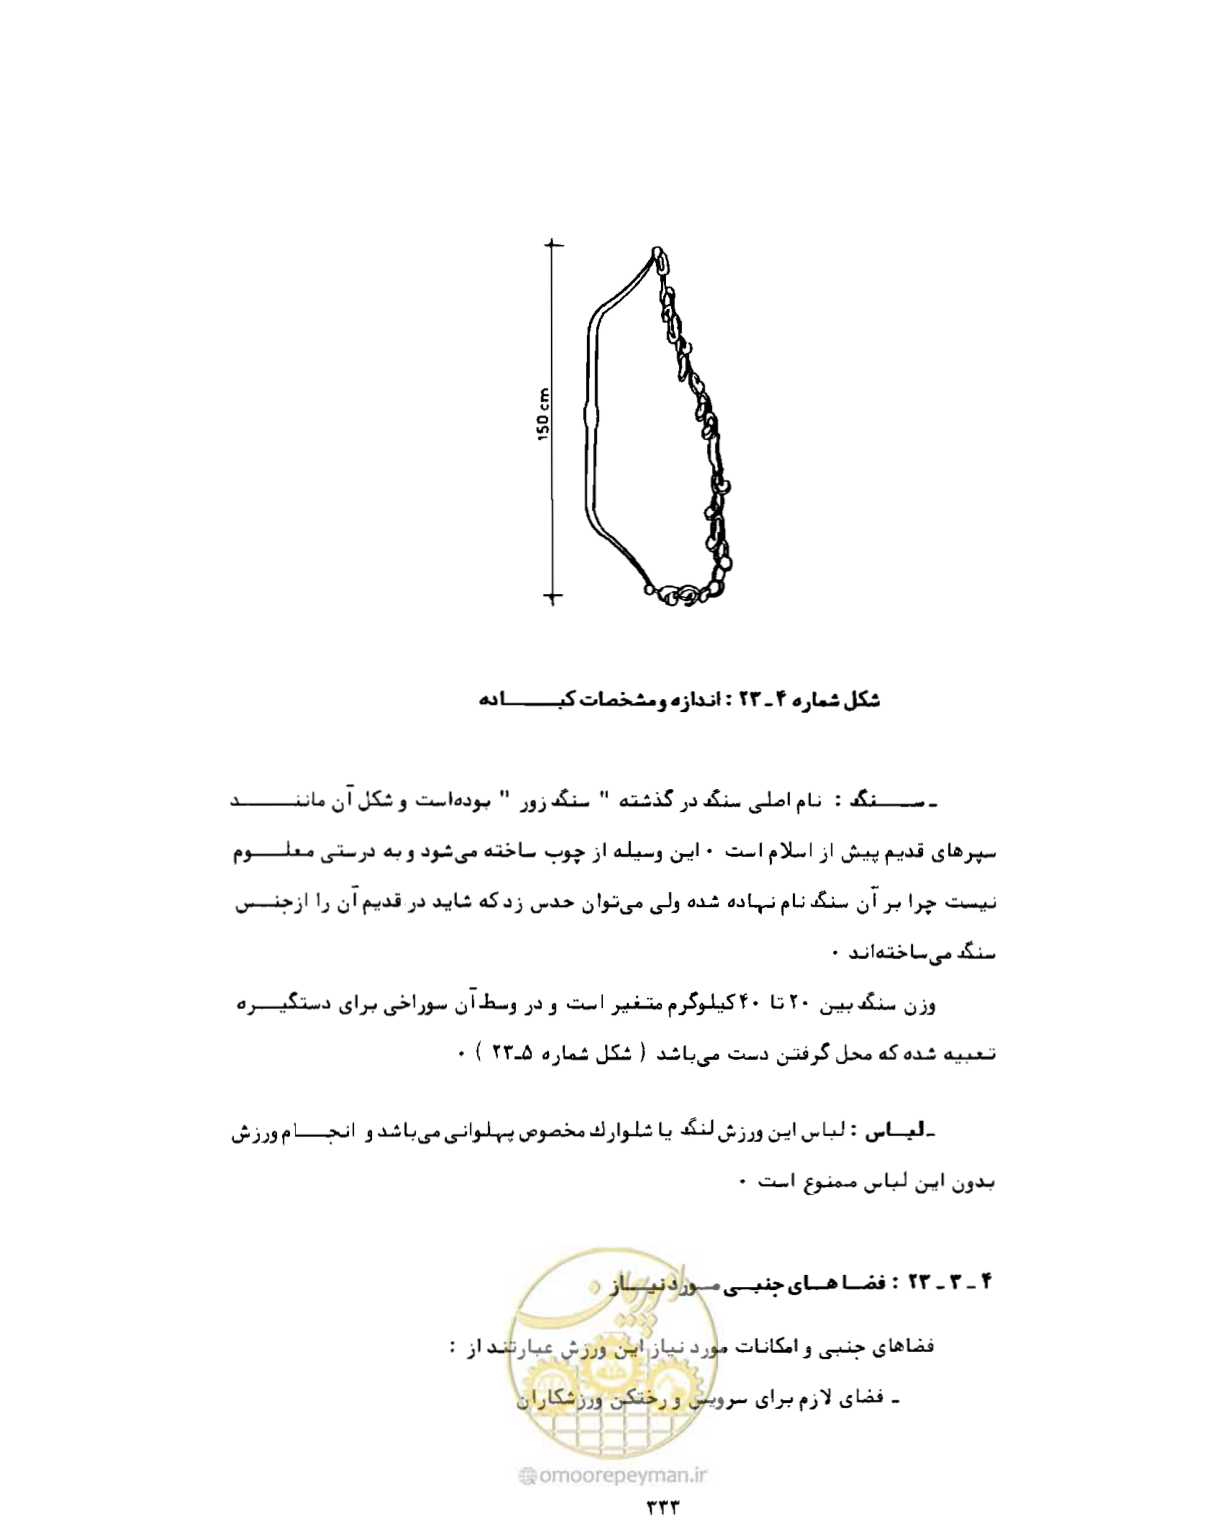 150 cm
شکل شماره ۴ ـ ۲۳ : اندازه ومشخصات کبـــاده
ـ ســـنگ : نام اصلی سنگ در گذشته " سنگ زور " بوده‌است و شکل آن ماننـــد
سپرهای قدیم پیش از اسلام است ۰ این وسیله از چوب ساخته می‌شود و به درستی معلـــوم
نیست چرا بر آن سنگ نام نهاده شده ولی می‌توان حدس زد که شاید در قدیم آن را ازجنــس
سنگ می‌ساخته‌اند ۰
وزن سنگ بین ۲۰ تا ۴۰ کیلوگرم متغیر است و در وسط آن سوراخی برای دستگیـــره
تعبیه شده که محل گرفتن دست می‌باشد ( شکل شماره ۵ـ۲۳ ) ۰
ـ لبــاس : لباس این ورزش لنگ یا شلوارك مخصوص پهلوانی می‌باشد و انجـــام ورزش
بدون این لباس ممنوع است ۰
۴ ـ ۳ ـ ۲۳ : فضــاهــای جنبــی مــورد نیــاز
فضاهای جنبی و امکانات مورد نیاز این ورزش عبارتند از :
ـ فضای لازم برای سرویس و رختکن ورزشکاران
امور پیمان
@omoorepeyman.ir
۳۳۳